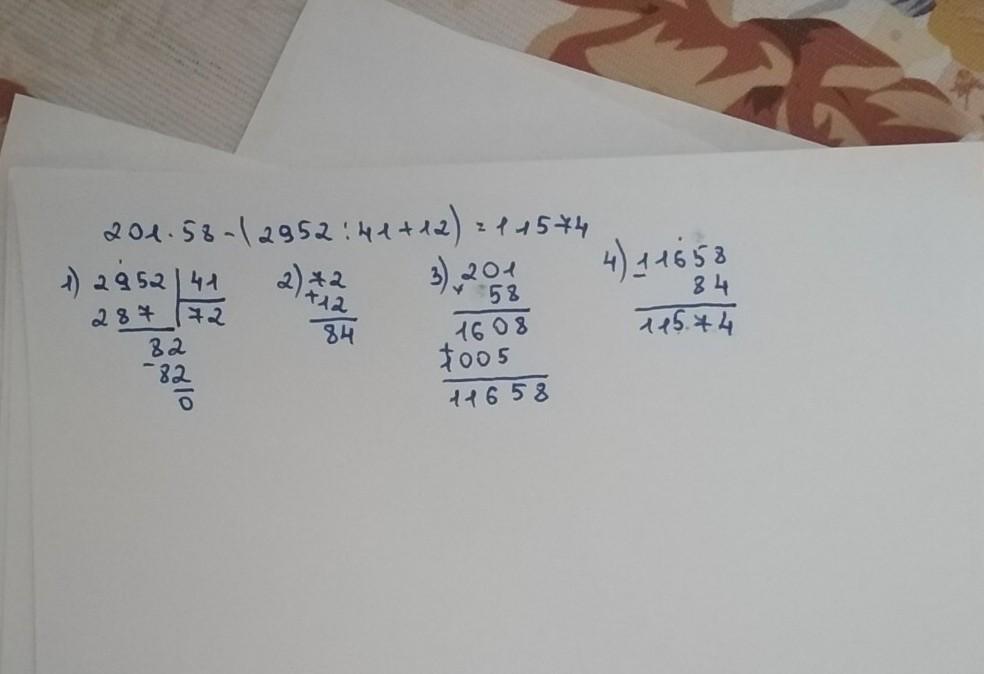 201·58-(2952:41+12)=11574
1) 2952 | 41
287 | 72
82
-82
0
2) 72
+12
84
3) 201
× 58
1608
+1005
11658
4) -11658
84
11574